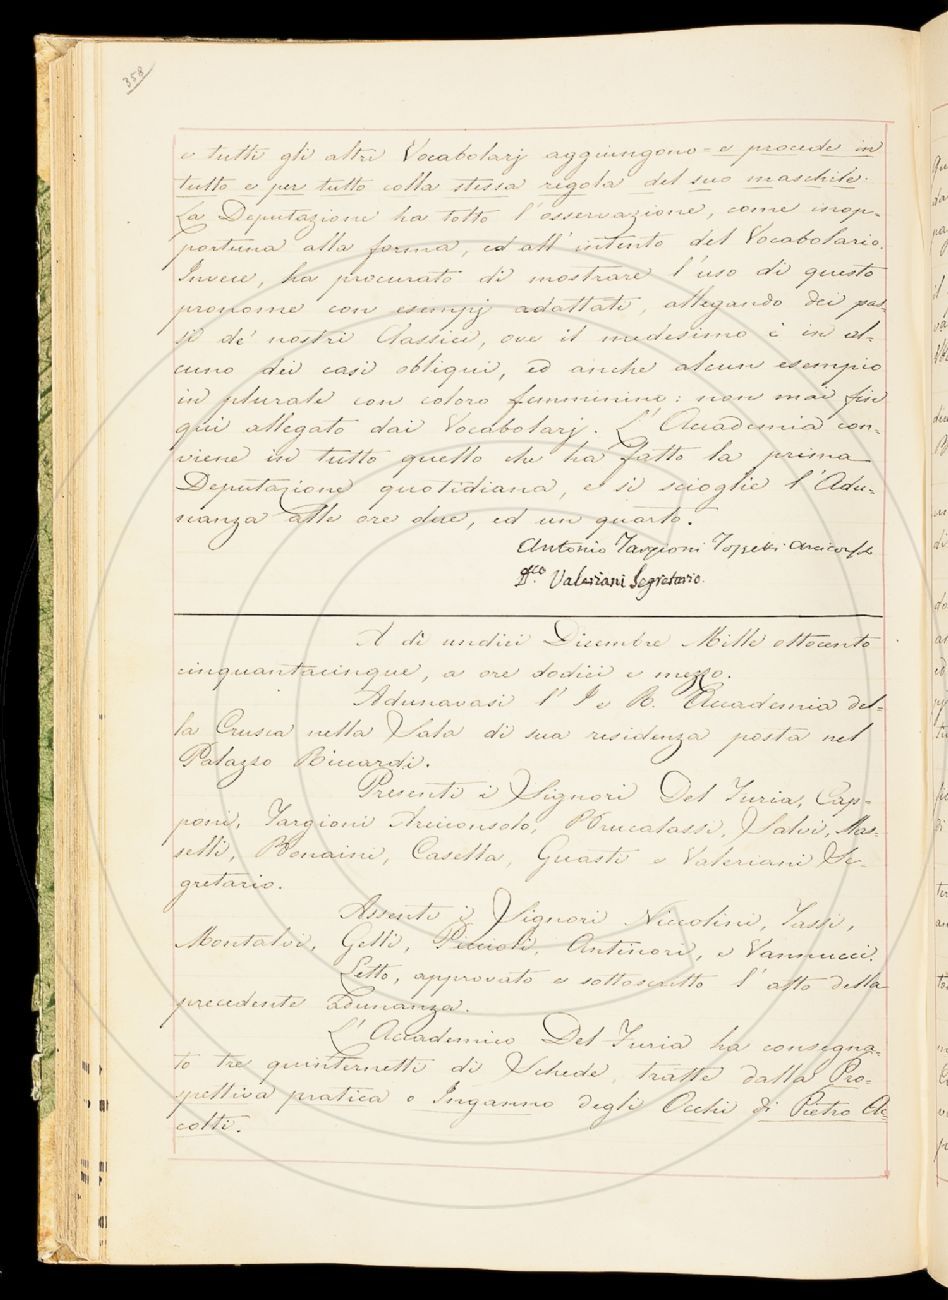 358
e tutti gli altri Vocabolarj aggiungono = e procede in
tutto e per tutto colla stessa regola del suo maschile.
La Deputazione ha tolto l'osservazione, come inop-
portuna alla forma, ed all'intento del Vocabolario.
Invece, ha procurato di mostrare l'uso di questo
pronome con esempj adattati, allegando dei pas-
si de' nostri Classici, ove il medesimo è in al-
cuno dei casi obliqui, ed anche alcun esempio
in plurale con coloro femminino: non mai fin
qui allegato dai Vocabolarj. L'Accademia con-
viene in tutto quello che ha fatto la prima
Deputazione quotidiana, e si scioglie l'Adu-
nanza alle ore due, ed un quarto.
Antonio Targioni Tozzetti
Valeriani Segretario.
A dì undici Dicembre Mille ottocento
cinquantacinque, a ore dodici e mezzo.
Adunavasi l'I e R. Accademia del-
la Crusca nella Sala di sua residenza posta nel
Palazzo Riccardi.
Presenti i Signori Del Furia, Cap-
poni, Targioni Arciconsolo, Brucalassi, Salvi, Mas-
selli, Bonaini, Casella, Guasti e Valeriani Se-
gretario.
Assenti i Signori Niccolini, Tassi,
Montalvi, Gelli, Piccioli, Antinori, e Vannucci.
Letto, approvato e sottoscritto l'atto della
precedente adunanza.
L'Accademico Del Furia ha consegna-
to tre quinternetti di Schede, tratte dalla Pro-
spettiva pratica o Inganno degli Occhi di Pietro Ac-
colti.